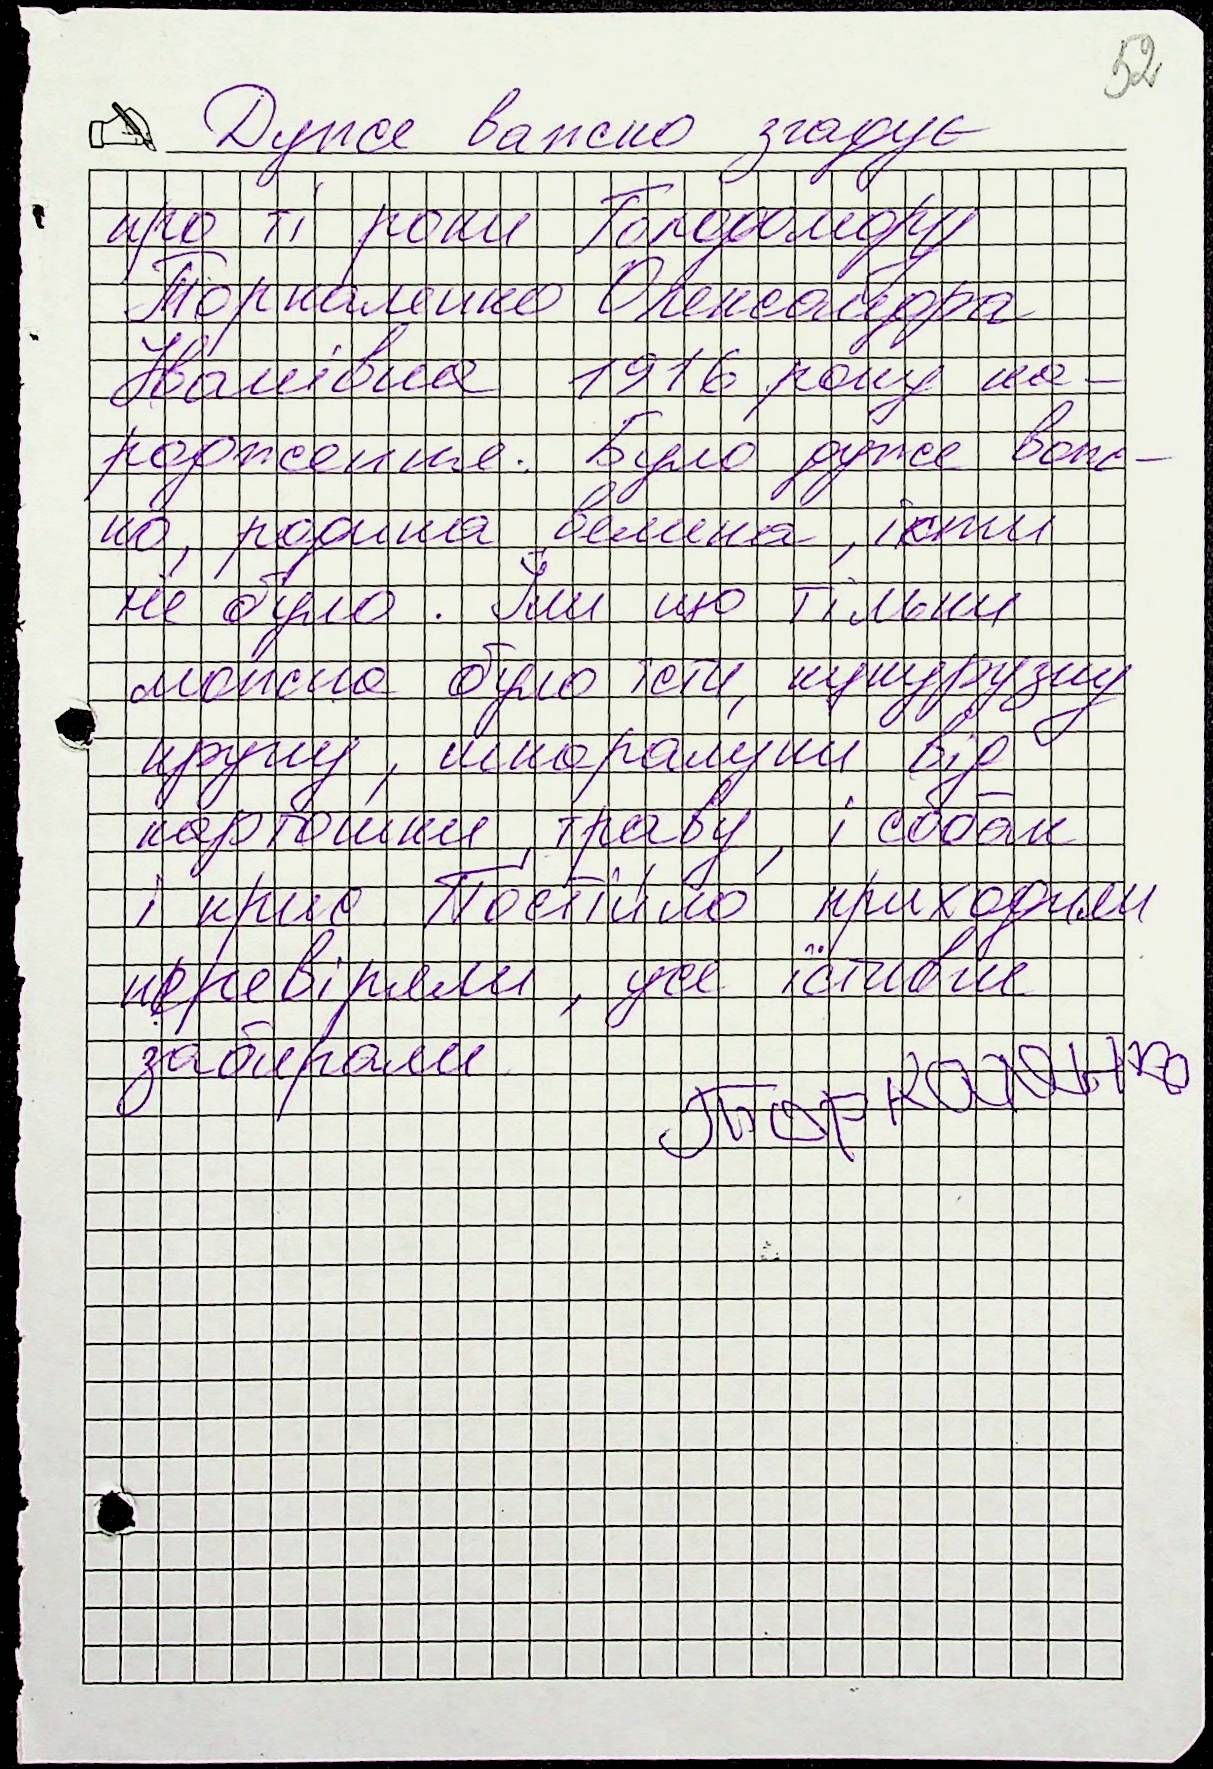 52
Дуже важко згадує
про ті роки Голодомору
Торкаленко Олександра
Іванівна 1916 року на-
родження. Було дуже важ-
ко, родина велика, їсти
не було. Їли що тільки
можна було їсти, кукурузну
крупу, шкоралупи від
картошки, траву, і собак
і крис Постійно приходили
перевіряли, уже їстивне
забирали
Торкаленко